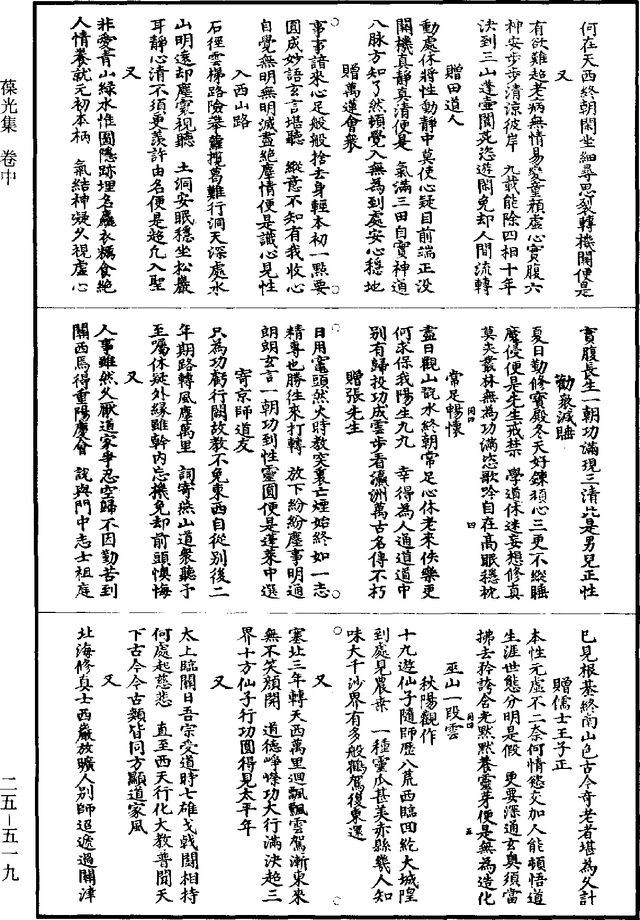 何在天西終朝閑坐細尋思裂轉機關便是
又
有欲難超老病無情易變童顏虛心實腹六
神安步步清涼彼岸 九載能除四相十年
決到三山蓬壺閬苑恣遊閑免却人間流轉
贈田道人
動處休將性動靜中莫使心疑目前端正没
關機真靜真清便是 氣滿三田自寶神通
八脉方知了然頓覺入無為到處安心穩地
贈萬蓮會衆
事事諳來心足般般捨去身輕本初一點要
圓成妙語玄言堪聽 縱意不知有我收心
自覺無明無明滅盡絶塵情便是識心見性
入西山路
石徑雲梯路險攀蘿攬葛難行洞天深處水
山明遠却塵寰視聽 土洞安眠穩坐松巖
耳靜心清不須更羨許由名便是超凡入聖
又
非愛青山緑水惟圖隱跡埋名麄衣糲食絶
人情養就元初本柄 氣結神凝久視虛心
實腹長生一朝功滿現三清此是男兒正性
勸衆減睡
夏日勤修寳殿冬天好鍊頑心三更不縱睡
魔侵便是先生戒禁 學道休迷妄想修真
莫失叢林無為功滿恣歌吟自在高眠穩枕
常足暢懷
盡日觀山翫水終朝常足心休老來佚樂更
何求保我陽生九九 幸得為人通道道中
别有歸投功成雲步看瀛洲萬古名傳不朽
贈張先生
日用竈頭然火時教突裏亡煙始終如一志
精專也勝往來打轉 放下紛紛塵事明通
朗朗玄言一朝功到性靈圓便是蓬萊中選
寄京師道友
只為功虧行闕故教不免東西自從别後二
年期路轉風塵萬里 詞寄燕山道衆聽予
至囑休疑外緣雖幹内忘機免却前頭懊悔
又
人事雖然久厭道家爭忍空歸不因勤苦到
關西焉得重陽慶會 説與門中志士祖庭
已見根基終南山色古今奇老者堪為久計
贈儒士王子正
本性元虛不二奈何情慾交加人能頓悟道
生涯世態分明是假 更要深通玄奥須當
拂去矜誇含光默默養靈芽便是無為造化
巫山一段雲
秋陽觀作
十九遊仙子隨師歷八荒西臨回紇大城隍
到處見農桒 一種靈瓜甚美亦縣幾人知
味大千沙界有多般鶴駕復東還
又
塞北三年轉天西萬里迴飄飄雲駕漸東來
無不笑顏開 道德崢嶸功大行滿決超三
界十方仙子行功圓得見太平年
又
太上臨關日吾宗受道時七雄戈戟鬭相持
何處起慈悲 直至西天行化大教普聞天
下古今今古類皆同方顯道家風
又
北海修真士西巖放曠人别師迢遞過關津
葆光集 卷中
二五－五一九